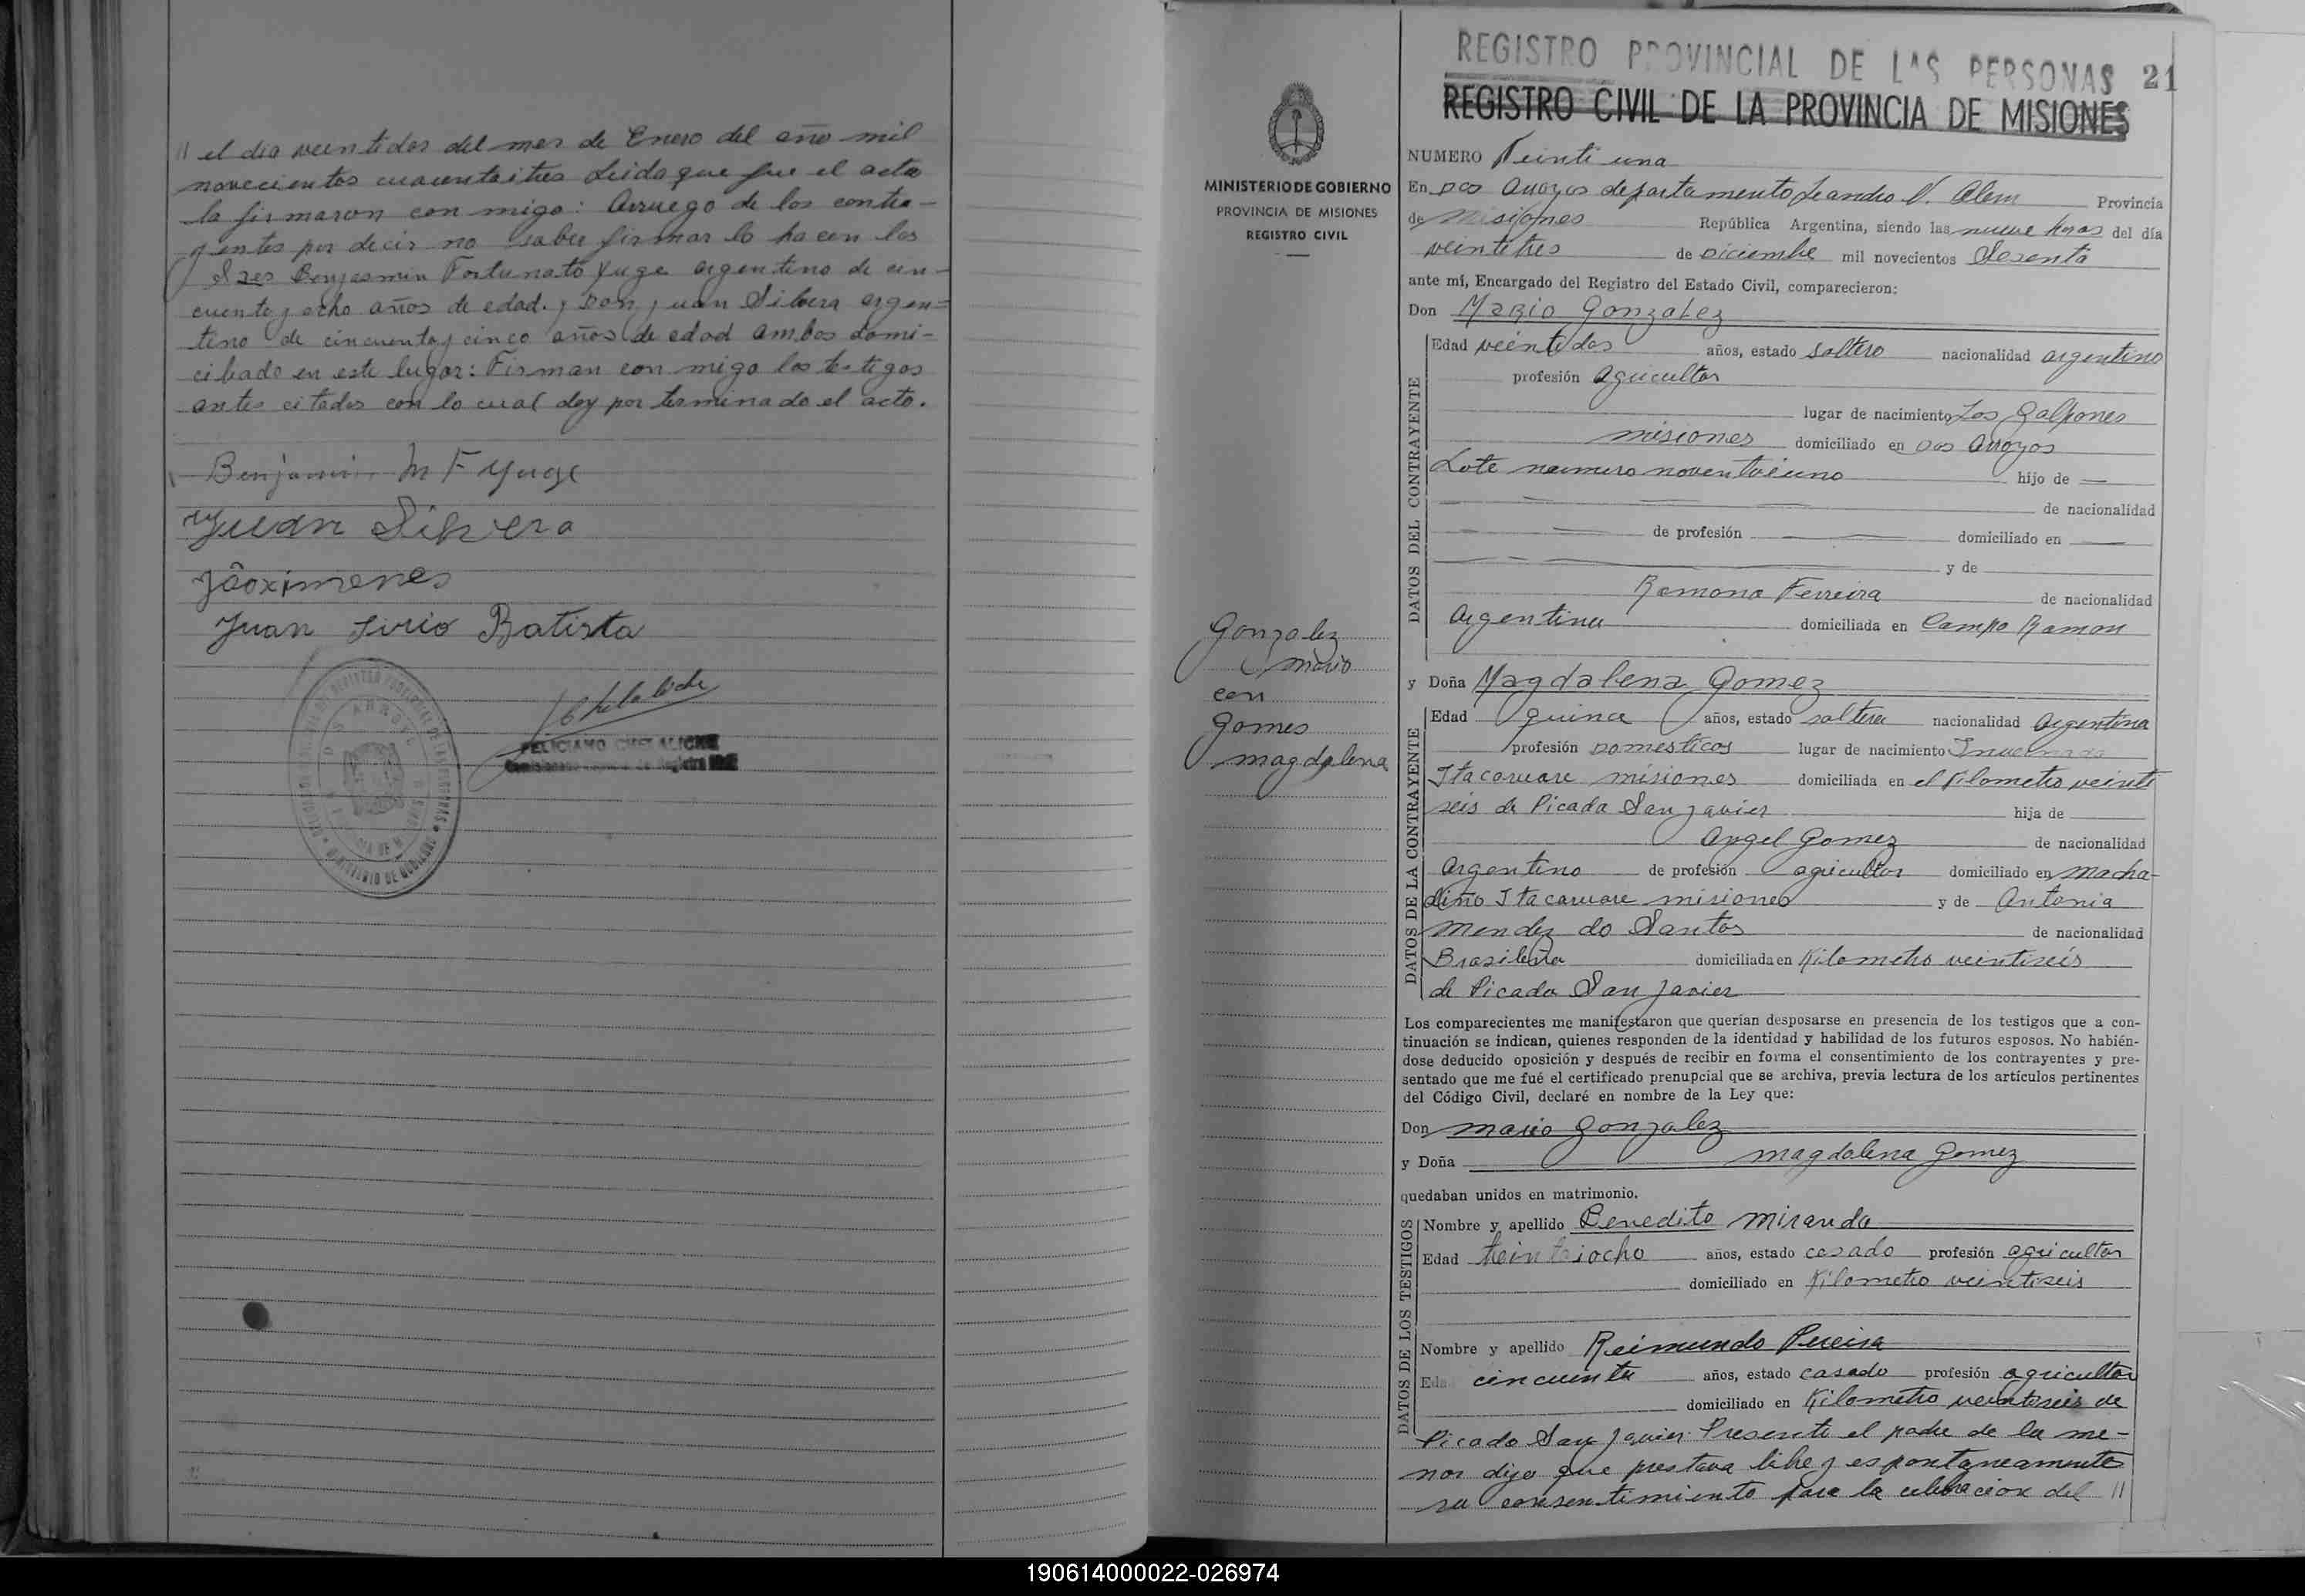 // el dia veintidos del mes de Enero del año mil
novecientos cuarentaitres Leida que fue el acta
la firmaron con migo: Arruego de los contra-
yentes por decir no saber firmar lo hacen los
Sres Benjasmin Fortunato Yuge argentino de cin-
cuenta y ocho años de edad. y Don Juan Silvera argen=
tino de cincuenta y cinco años de edad ambos domi-
ciliado en este lugar: Firman con migo los testigos
antes citados con lo cual doy por terminado el acto.
Benjamin M F Yuge
Juan Silvera
Jãoximenes
Juan Sirio Batista
FELICIANO CHELALICHE
REGISTRO PROVINCIAL DE LAS PERSONAS 21
REGISTRO CIVIL DE LA PROVINCIA DE MISIONES
MINISTERIO DE GOBIERNO
PROVINCIA DE MISIONES
REGISTRO CIVIL
NUMERO Veinti una
En Dos Arroyos departamento Leandro N. Alem Provincia
de Misiones República Argentina, siendo las nueve horas del día
veintitres de Diciembre mil novecientos Sesenta
ante mí, Encargado del Registro del Estado Civil, comparecieron:
Don Mario Gonzalez
DATOS DEL CONTRAYENTE
Edad veintidos años, estado soltero nacionalidad argentino
profesión agricultor
lugar de nacimiento Los Galpones
misiones domiciliado en Dos Arroyos
Lote numero noventaiuno hijo de
de nacionalidad
de profesión domiciliado en
y de
Ramona Ferreira de nacionalidad
Argentina domiciliada en Campo Ramon
Gonzalez
Mario
con
Gomes
magdalena
y Doña Magdalena Gomez
DATOS DE LA CONTRAYENTE
Edad quince años, estado soltera nacionalidad Argentina
profesión Domesticos lugar de nacimiento
Itacaruare misiones domiciliada en el Kilometro veinti
seis de Picada San Javier hija de
Angel Gomez de nacionalidad
Argentino de profesión agricultor domiciliado en Macha-
diño Itacaruare misiones y de Antonia
Mendez do Santos de nacionalidad
Brasileña domiciliada en Kilometro veintiseis
de Picada San Javier
Los comparecientes me manifestaron que querían desposarse en presencia de los testigos que a con-
tinuación se indican, quienes responden de la identidad y habilidad de los futuros esposos. No habién-
dose deducido oposición y después de recibir en forma el consentimiento de los contrayentes y pre-
sentado que me fué el certificado prenupcial que se archiva, previa lectura de los artículos pertinentes
del Código Civil, declaré en nombre de la Ley que:
Don Mario Gonzalez
y Doña Magdalena Gomez
quedaban unidos en matrimonio.
DATOS DE LOS TESTIGOS
Nombre y apellido Benedito Miranda
Edad treintaiocho años, estado casado profesión agricultor
domiciliado en Kilometro veintiseis
Nombre y apellido Reimundo Pereira
Eda cincuenta años, estado casado profesión agricultor
domiciliado en Kilometro veintiseis de
Picada San Javier. Presente el padre de la me-
nor dijo que prestava libre y espontaneamente
su consentimiento para la celebracion del //
190614000022-026974